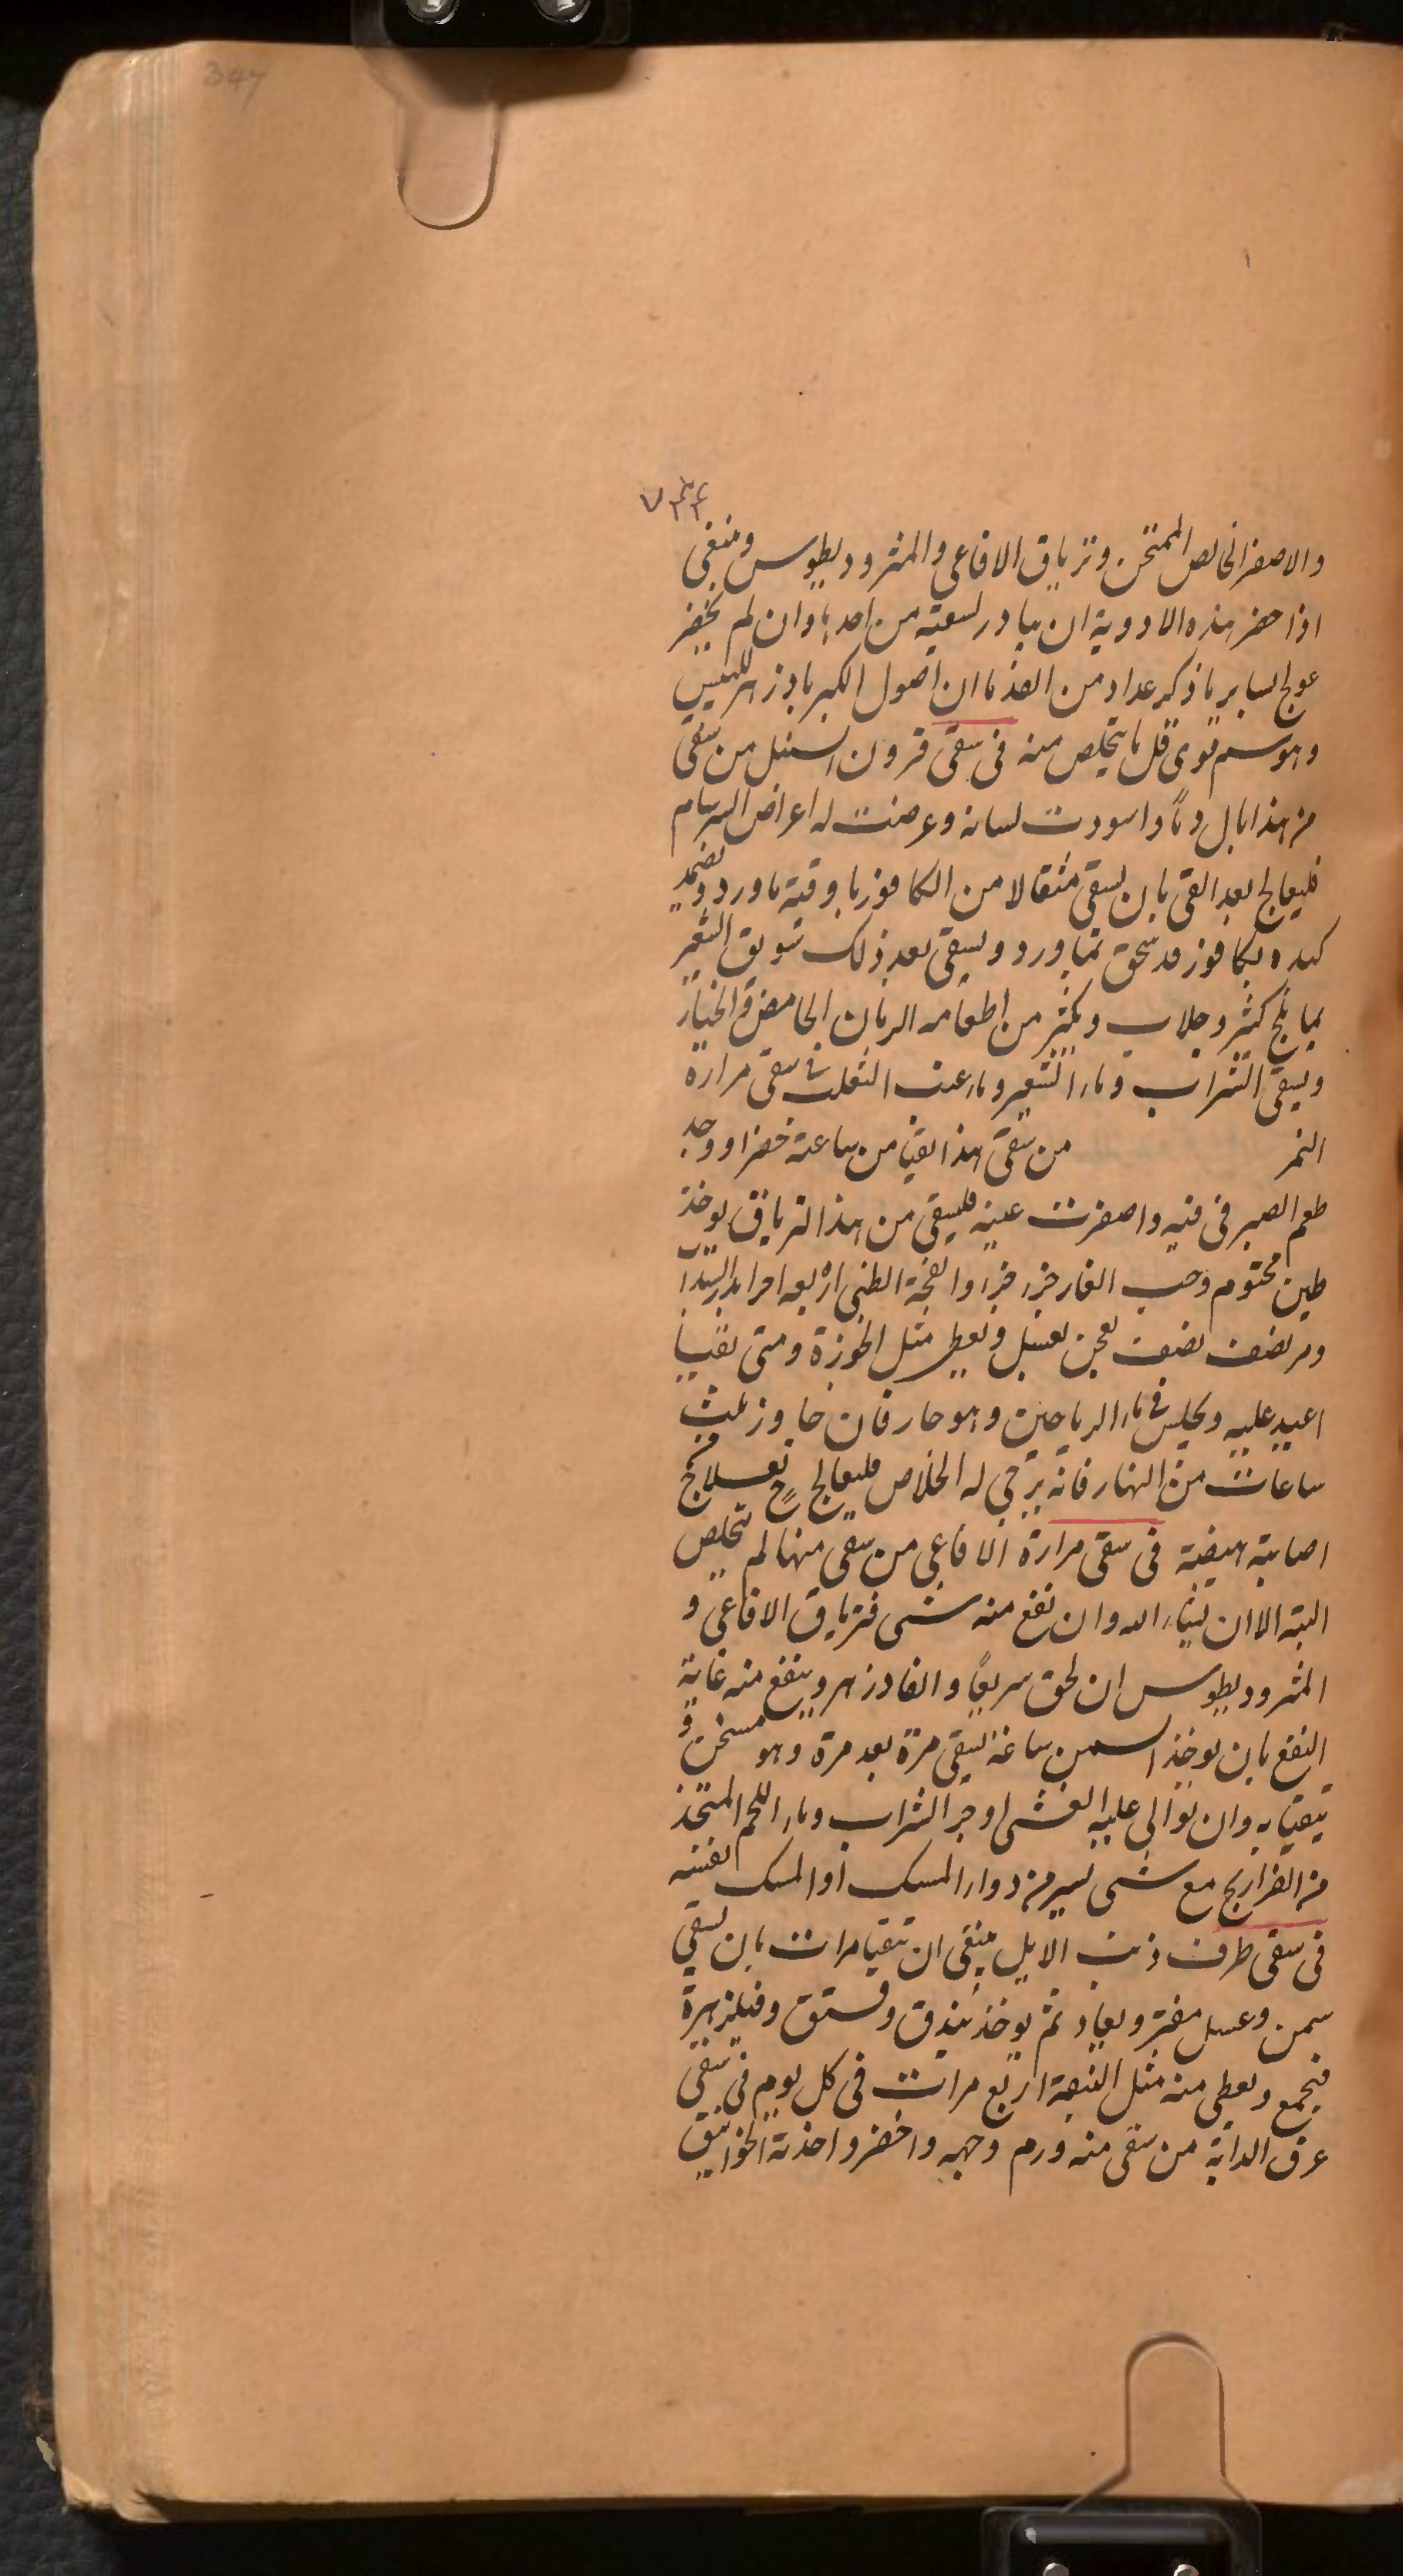 347
٧٣٤
والاصفر الخالص الممتحن وترياق الافاعى والمثروديطوس وينبغى
اذا حضر هذه الادوية ان يبادر بسقيه من احدها وان لم يحضر
عولج بساير ما ذكر عداد من الغذ ما ان اصول الكبر بادزهر للبيش
وهو سم قوى قل ما يتخلص منه فى سقى قرون السنبل من سقى
من هذا بال دمًا واسودت لسانه وعرضت له اعراض السرسام
فليعالج بعد القى بان يسقى مثقالا من الكافور باوقية ماورد ويضمد
كبده بكافور قد سحق بماورد ويسقى بعد ذلك سويق الشعير
بماء ثلج كثير وجلاب ويكثر من اطعامه الرمان الحامض والخيار
ويسقى الشراب وماء الشعير وماء عنب الثعلب فى سقى مرارة
النمر من سقى هذا يقيا من ساعته خضرا ووجد
طعم الصبر فى فيه واصفرت عينه فليسقى من هذا الترياق يوخذ
طين مختوم وحب الغار جزء جزء وانفحة الظبى اربعه اجزاء بزر السداب
ومر نصف نصف يعجن بعسل ويعطى مثل الجوزة ومتى تقيا
اعيد عليه ويجلس فى ماء الرياحين وهو حار فان جاوز ثلث
ساعات من النهار فانه يرجى له الخلاص فليعالج ح بعلاج
اصابته هيضة فى سقى مرارة الافاعى من سقى منها لم يتخلص
البتة الا ان يشاء الله وان نفع منه شى فترياق الافاعى و
المثروديطوس ان لحق سريعًا والفادزهر وينفع منه غاية
النفع بان يوخذ السمن ساعة يسقى مرة بعد مرة وهو مسخن و
يتقيا به وان توالى عليه الغشى اوجر الشراب وماء اللحم المتخذ
من الفراريج مع شى يسير من دواء المسك او المسك نفسه
فى سقى طرف ذنب الايل ينبغى ان يتقيا مرات بان يسقى
سمن وعسل مفتر ويعاد ثم يوخذ بندق وفستق وفيلزهرة
فيجمع ويعطى منه مثل النبقة اربع مرات فى كل يوم فى سقى
عرق الدابة من سقى منه ورم وجهه واخضر واخذته الخوانيق